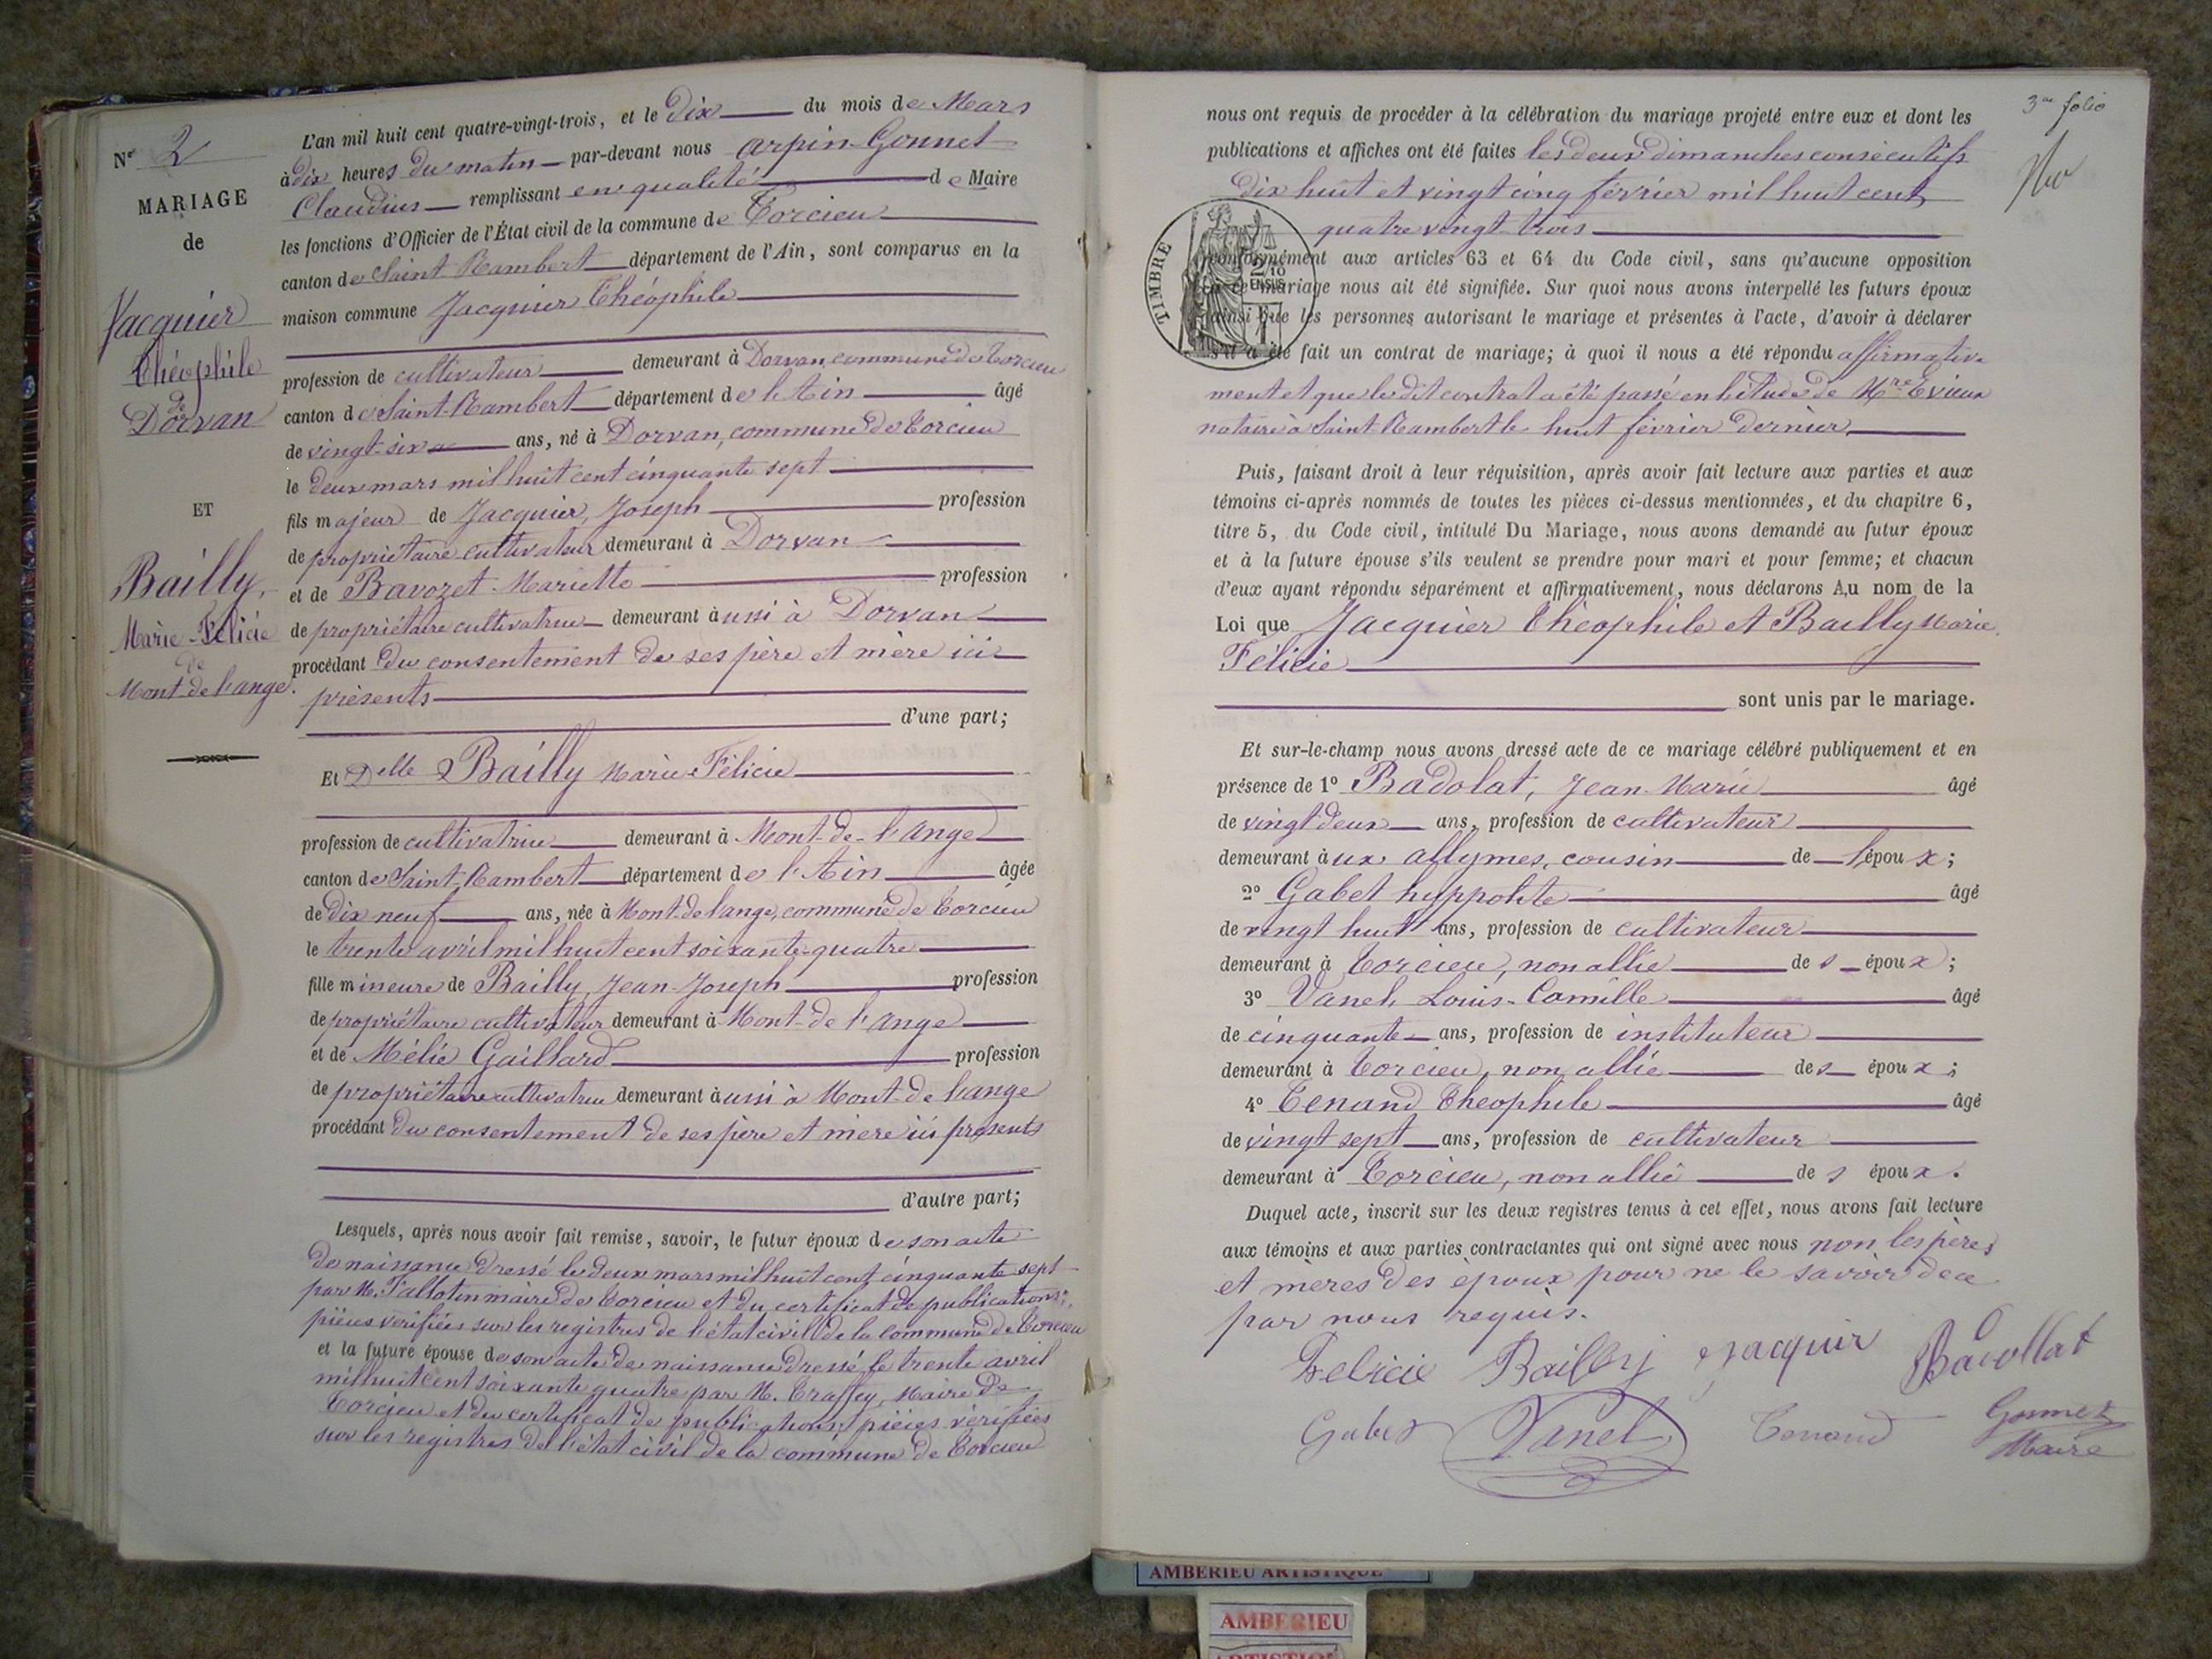 N° 2
MARIAGE
de
Jacquier
Théophile
de
Dorvan
ET
Bailly,
Marie-Félicie
de
Mont-de-l'ange.
L'an mil huit cent quatre-vingt-trois, et le dix du mois de Mars
à dix heures du matin par-devant nous Arpin-Gonnet
Claudius remplissant en qualité de Maire
les fonctions d'Officier de l'État civil de la commune de Torcieu
canton de Saint Rambert département de l'Ain, sont comparus en la
maison commune Jacquier Théophile
profession de cultivateur demeurant à Dorvan, commune de Torcieu
canton de Saint-Rambert département de l'Ain âgé
de vingt-six ans, né à Dorvan, commune de Torcieu
le deux mars mil huit cent cinquante sept
fils majeur de Jacquier, Joseph profession
de propriétaire cultivateur demeurant à Dorvan
et de Bavozet Mariette profession
de propriétaire cultivatrice demeurant aussi à Dorvan
procédant du consentement de ses père et mère ici
présents
d'une part;
Et Delle Bailly Marie-Félicie
profession de cultivatrice demeurant à Mont-de-l'Ange
canton de Saint-Rambert département de l'Ain âgée
de dix neuf ans, née à Mont-de-l'ange, commune de Torcieu
le trente avril mil huit cent soixante-quatre
fille mineure de Bailly, Jean-Joseph profession
de propriétaire cultivateur demeurant à Mont-de-l'Ange
et de Mélie Gaillard profession
de propriétaire cultivatrice demeurant aussi à Mont-de-l'ange
procédant du consentement de ses père et mère ici présents
d'autre part;
Lesquels, après nous avoir fait remise, savoir, le futur époux de son acte
de naissance dressé le deux mars mil huit cent cinquante sept
par M. Tallotin maire de Torcieu et du certificat de publications;
pièces vérifiées sur les registres de l'état civil de la commune de Torcieu
et la future épouse de son acte de naissance dressé le trente avril
mil huit cent soixante quatre par M. Traffey, Maire de
Torcieu et du certificat de publications, pièces vérifiées
sur les registres de l'état civil de la commune de Torcieu
3me folio
nous ont requis de procéder à la célébration du mariage projeté entre eux et dont les
publications et affiches ont été faites les deux dimanches consécutifs
dix huit et vingt cinq février mil huit cent
quatre vingt-trois
TIMBRE
2/10
EN SUS
conformément aux articles 63 et 64 du Code civil, sans qu'aucune opposition
à ce mariage nous ait été signifiée. Sur quoi nous avons interpellé les futurs époux
ainsi que les personnes autorisant le mariage et présentes à l'acte, d'avoir à déclarer
s'il a été fait un contrat de mariage; à quoi il nous a été répondu affirmative
ment et que le dit contrat a été passé en l'étude de Mre Evieux
notaire à Saint-Rambert le huit février dernier
Puis, faisant droit à leur réquisition, après avoir fait lecture aux parties et aux
témoins ci-après nommés de toutes les pièces ci-dessus mentionnées, et du chapitre 6,
titre 5, du Code civil, intitulé Du Mariage, nous avons demandé au futur époux
et à la future épouse s'ils veulent se prendre pour mari et pour femme; et chacun
d'eux ayant répondu séparément et affirmativement, nous déclarons Au nom de la
Loi que Jacquier Théophile et Bailly Marie
Félicie
sont unis par le mariage.
Et sur-le-champ nous avons dressé acte de ce mariage célébré publiquement et en
présence de 1° Badolat, Jean-Marie âgé
de vingt deux ans, profession de cultivateur
demeurant aux allymes, cousin de l'époux;
2° Gabet hyppolite âgé
de vingt huit ans, profession de cultivateur
demeurant à Torcieu, non allié des époux;
3° Vanel, Louis-Camille âgé
de cinquante ans, profession de instituteur
demeurant à Torcieu, non allié des époux;
4° Tenand Théophile âgé
de vingt sept ans, profession de cultivateur
demeurant à Torcieu, non allié des époux.
Duquel acte, inscrit sur les deux registres tenus à cet effet, nous avons fait lecture
aux témoins et aux parties contractantes qui ont signé avec nous non les pères
et mères des époux pour ne le savoir de ce
par nous requis.
Felicie Bailly Jacquir Badollat
Gabet Vanel Tenand Gonnet
Maire
AMBERIEU ARTISTIQUE
AMBERIEU
ARTISTIQUE